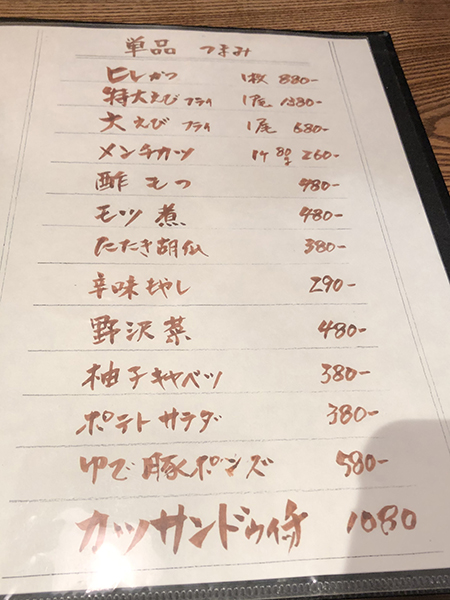 単品 つまみ
ヒレかつ 1枚 880-
特大えび フライ 1尾 1380-
大えび フライ 1尾 680-
メンチカツ 1ケ 80g 260-
酢もつ 480-
モツ煮 480-
たたき胡瓜 380-
辛味もやし 290-
野沢菜 480-
柚子キャベツ 380-
ポテトサラダ 380-
ゆで豚ポンズ 580-
カツサンドゥ 1080